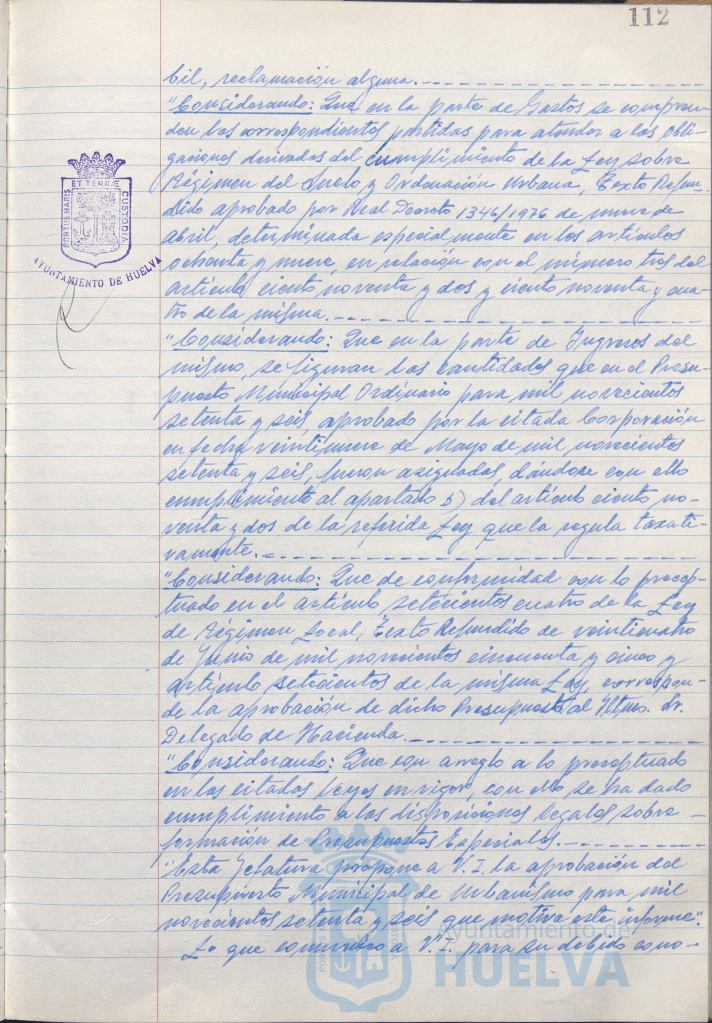 112
bil, reclamación alguna.
"Considerando: Que en la parte de Gastos se compren-
den las correspondientes partidas para atender a las obli-
gaciones derivadas del cumplimiento de la Ley sobre
Régimen del Suelo y Ordenación Urbana, Texto Refun-
dido aprobado por Real Decreto 1346/1976 de nueve de
abril, determinada especialmente en los artículos
ochenta y nueve, en relación con el número tres del
artículo ciento noventa y dos y ciento noventa y cua-
tro de la misma.
"Considerando: Que en la parte de Ingresos del
mismo, se figuran las cantidades que en el Presu-
puesto Municipal Ordinario para mil novecientos
setenta y seis, aprobado por la citada Corporación
en fecha veintinueve de Mayo de mil novecientos
setenta y seis, fueron asignadas, dándose con ello
cumplimiento al apartado b) del artículo ciento no-
venta y dos de la referida Ley que la regula taxati-
vamente.
"Considerando: Que de conformidad con lo precep-
tuado en el artículo setecientos cuatro de la Ley
de Régimen Local, Texto Refundido de veinticuatro
de Junio de mil novecientos cincuenta y cinco y
artículo setecientos de la misma Ley, correspon-
de la aprobación de dicho Presupuesto al Iltmo. Sr.
Delegado de Hacienda.
"Considerando: Que con arreglo a lo preceptuado
en las citadas leyes en vigor, con ello se ha dado
cumplimiento a las disposiciones legales sobre
formación de Presupuestos Especiales.
"Esta Jefatura propone a V.I. la aprobación del
Presupuesto Municipal de Urbanismo para mil
novecientos setenta y seis que motiva este informe".
Lo que comunico a V.I. para su debido cono-
PORTUS MARIS ET TERRÆ CUSTODIA
AYUNTAMIENTO DE HUELVA
Ayuntamiento de
HUELVA